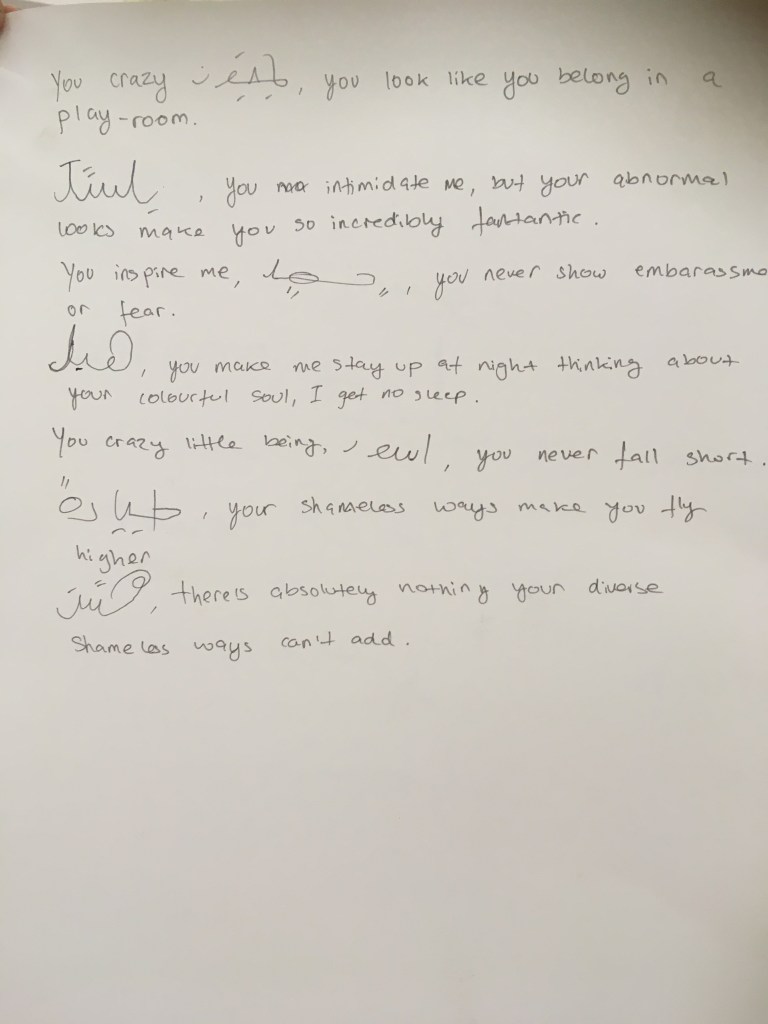 You crazy , you look like you belong in a
play-room.
, you intimidate me, but your abnormal
looks make you so incredibly fantantic.
You inspire me, , you never show embarassme
or fear.
, you make me stay up at night thinking about
your colourful soul, I get no sleep.
You crazy little being, , you never fall short.
, your shameless ways make you fly
higher
, there's absolutely nothing your diverse
shameless ways can't add.